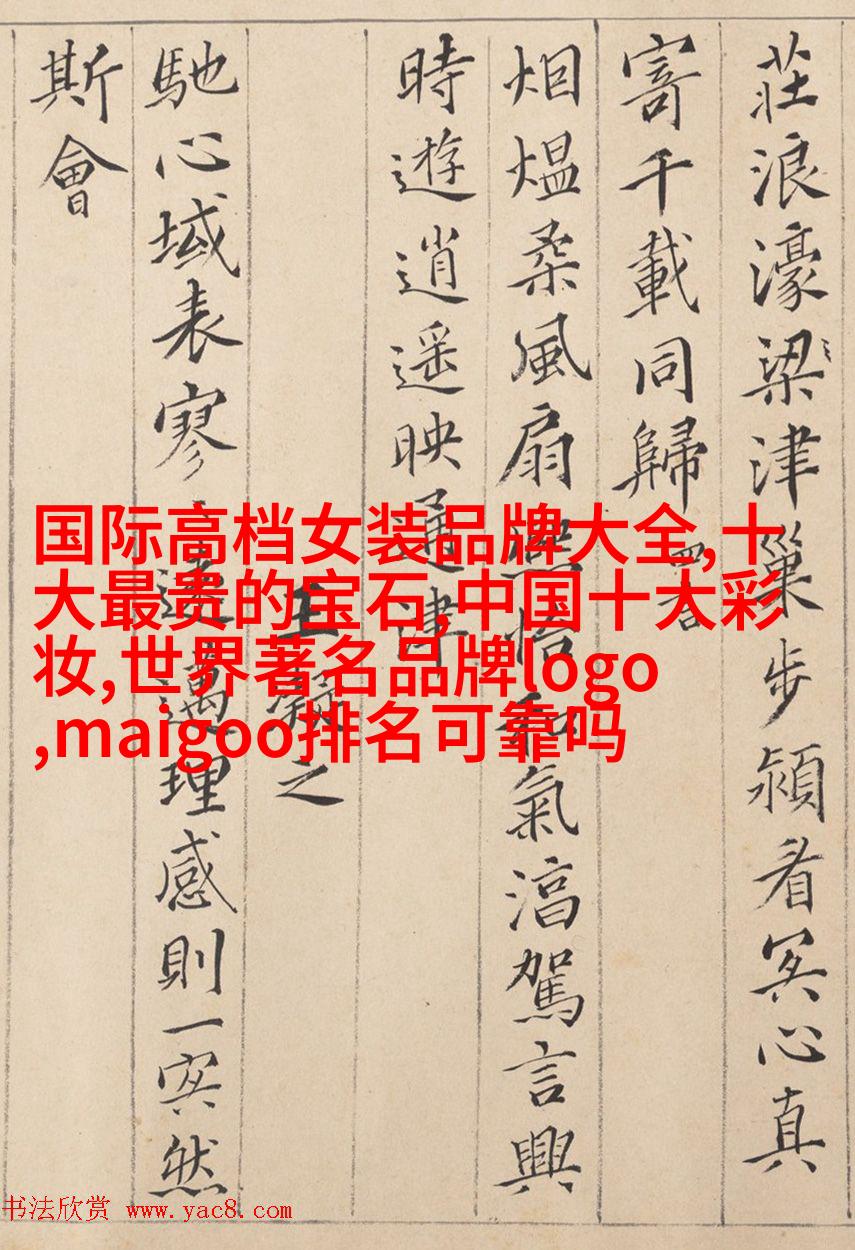 莊浪濠梁津巢步潁看冥心真
寄千載同歸 四言
烟熅柔風扇熙怡和氣淳駕言興
時遊逍遥映通津
王凝之
馳心域表寥々遠邁理感則一冥然
斯會
国际高档女装品牌大全,十
大最贵的宝石,中国十大彩
妆,世界著名品牌logo
,maigoo排名可靠吗
书法欣赏 www.yac8.com